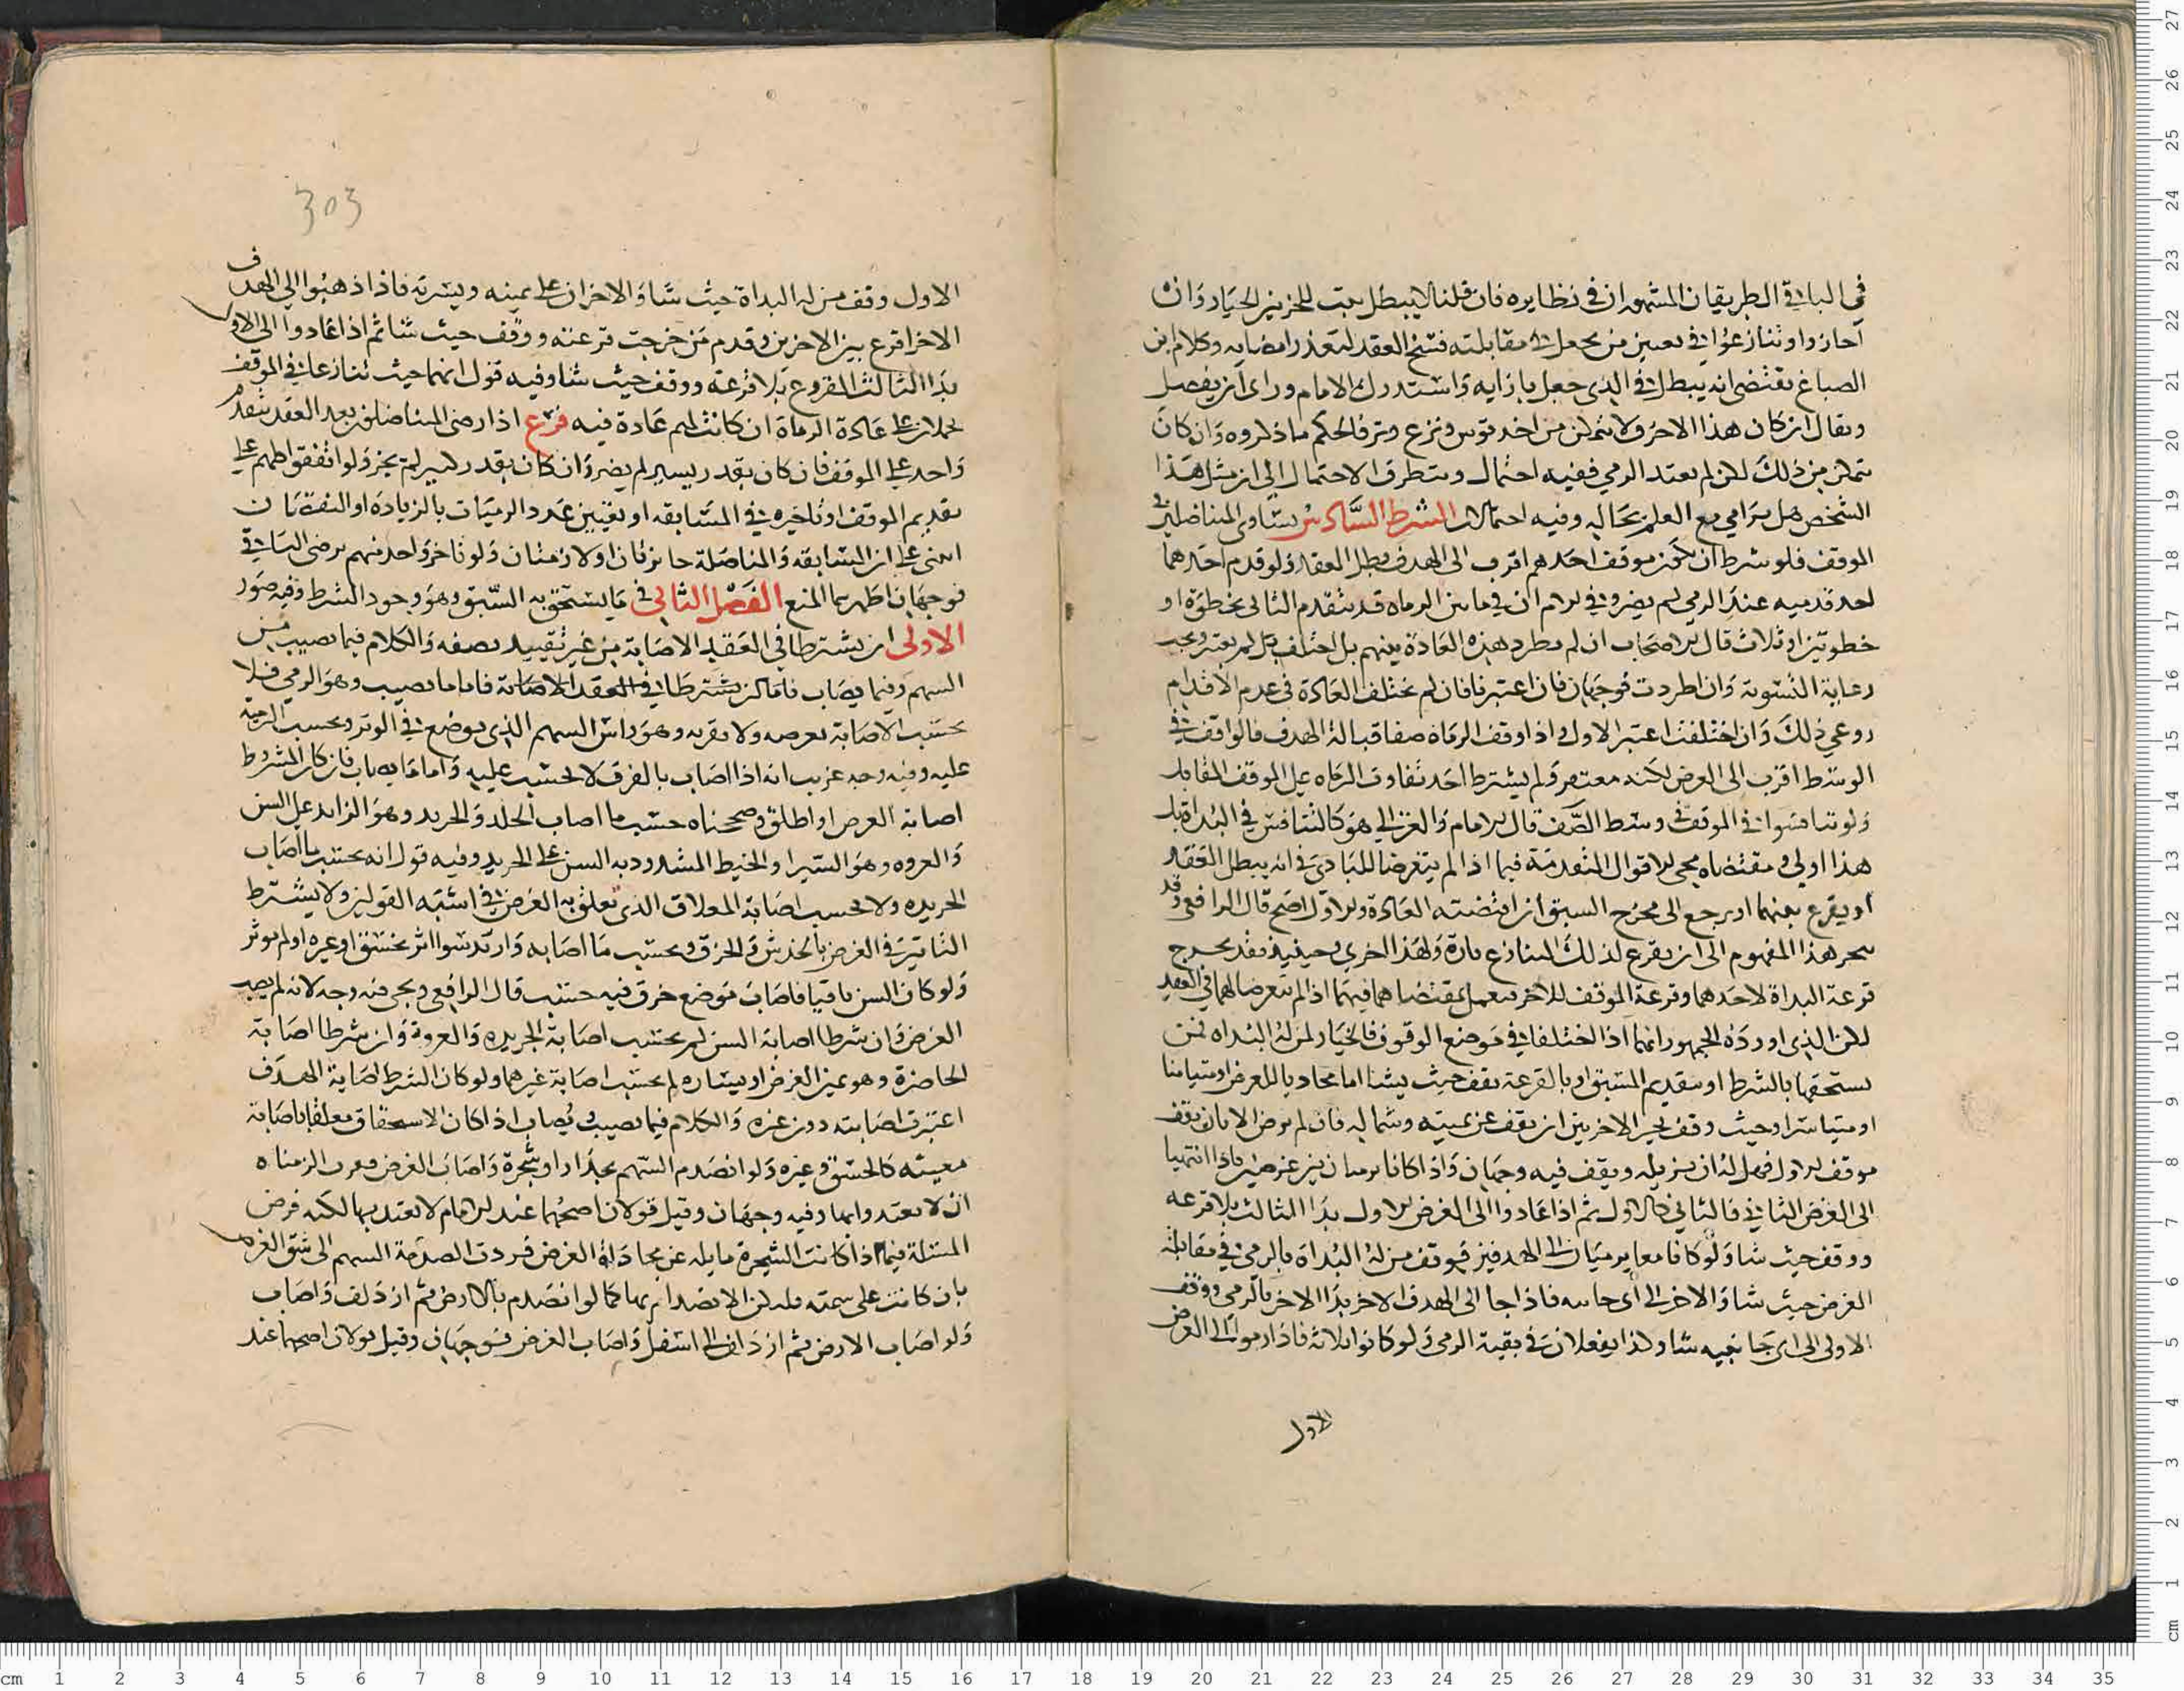 في الباقي الطريقان المشهوران في نظايره فان قلنا لا يبطل يثبت للحزبين الخيار وان
اجازوا وتنازعوا في تعيين من يجعل في مقابلته فسخ العقد لتعذر امضايه وكلام ابن
الصباغ يقتضي انه يبطل في الذي جعل بازايه واستدرك الامام وراى ان يفصل
ويقال ان كان هذا الاخرق لا يتمكن من اخذ قوس ونزع وتر فالحكم ما ذكروه وان كان
يتمكن من ذلك لكن لم يعتد الرمي ففيه احتمال ويتطرق الاحتمال الى ان مثل هذا
الشخص هل يرامي مع العلم بحاله وفيه احتمالان الشرط السادس تساوي المتناضلين في
الموقف فلو شرط ان يكون موقف احدهم اقرب الى الهدف بطل العقد ولو قدم احدهما
احد قدميه عند الرمي لم يضر وفي الام ان في ما بين الرماه قد يتقدم الثاني بخطوة او
خطوتين او ثلاث قال الاصحاب ان لم تطرد هذه العادة بينهم بل اختلف لم تعتبر ويجب
رعاية التسوية وان اطردت فوجهان فان اعتبرنا فان لم تختلف العادة في عدم الاقدام
روعي ذلك وان اختلفت اعتبر الاول واذا وقف الرماة صفا قبالة الهدف فالواقف في
الوسط اقرب الى الغرض لكنه مغتفر ولم يشترط احد تفاوت الرماه على الموقف المقابل
ولو تنافسوا في الموقف في وسط الصف قال الامام والغزالي هو كالتنافس في البداة بل
هذا اولى ومقتضاه مجي الاقوال المتقدمة فيما اذا لم يتعرضا للبادي في انه يبطل العقد
او يقرع بينهما او يرجع الى مخرج السبق ان اقتضته العادة والاول اصح قال الرافعي وقد
ينجر هذا المفهوم الى ان يقرع لذلك التنازع تارة ولهذا اخرى وحينيذ فقد يخرج
قرعة البداة لاحدهما وقرعة الموقف للاخر فيعمل بمقتضاهما فيهما اذا لم يتعرضا لهما في العقد
لكن الذي اورده الجمهور انهما اذا اختلفا في موضع الوقوف فالخيار لمن له البداه فمن
يستحقها بالشرط او بتقديم المسبق او بالقرعة يقف حيث يشا اما محاذيا للغرض او متيامنا
او متياسرا وحيث وقف يخير الاخر بين ان يقف عن يمينه وشماله فان لم يرض الا بان يقف
موقف الاول فهل له ان يزيله ويقف فيه وجهان واذا كانا يرميان بين غرضين فاذا انتهيا
الى الغرض الثاني فالثاني كالاول ثم اذا عادوا الى الغرض الاول بدا الثالث بلا قرعه
ووقف حيث شا ولو كانا معا يرميان الى الهدفين فيوقف من له البداة بالرمي في مقابلة
الغرض حيث شا والاخر الى اى جانبيه فاذا جا الى الهدف الاخر بدا الاخر بالرمي ووقف
الاولى الى اى جانبيه شا وكذا يفعلان في بقية الرمي ولو كانوا ثلاثة فاذا رموا الى الغرض
الاول
303
الاول وقف من له البداة حيث شا والاخران على يمينه ويسرته فاذا ذهبوا الى الهدف
الاخر اقرع بين الاخرين وقدم من خرجت قرعته ووقف حيث شا ثم اذا عادوا الى الاول
بدا الثالث المقروع بلا قرعة ووقف حيث شا وفيه قول انهما حيث تنازعا في الموقف
يحملان على عادة الرماة ان كانت لهم عادة فيه فرع اذا رضي المتناضلون بعد العقد بتقدم
واحد على الموقف فان كان بقدر يسير لم يضر وان كان بقدر كبير لم يجز ولو اتفقوا كلهم على
تقديم الموقف او تاخيره في المسابقه او تغيير عدد الرميات بالزيادة او النقصان
انبنى على ان المسابقه والمناضلة جايزتان او لازمتان ولو تاخر واحد منهم برضى الباقي
فوجهان اظهرهما المنع الفصل الثاني في ما يستحق به السبق وهو وجود الشرط وفيه صور
الاولى ان يشترطا في العقد الاصابة من غير تقييد بصفه والكلام فيما يصيب من
السهم وفيما يصاب فاما ان يشترطا في العقد الاصابة فاما ما يصيب وهو الرمي فلا
يحتسب الاصابة بعرضه ولا بقربه وهو راس السهم الذي يوضع في الوتر ويحسب الرمية
عليه وفيه وجه غريب انه اذا اصاب بالفرق لا يحتسب عليه واما ما يصاب فان كان المشروط
اصابة الغرض او اطلق وصححناه حسب ما اصاب الجلد والجريد وهو الزايد على السن
والعروه وهو السير او الخيط المشدود به السن على الجريد وفيه قول انه يحتسب ما اصاب
الجريده ولا يحسب اصابة المعلاق الذي تعلق به الغرض في اشبه القولين ولا يشترط
التاثير في الغرض بالخدش والخرق ويحتسب ما اصابه وارتد سوا اثر بخسق او غيره او لم يوثر
ولو كان السن باقيا فاصاب موضع خرق فيه حسب قال الرافعي ويجي فيه وجه لانه لم يصب
الغرض وان شرطا اصابة السن لم يحتسب اصابة الجريده والعروة وان شرطا اصابة
الخاصرة وهو يمين الغرض او يساره لم يحتسب اصابة غيرهما ولو كان الشرط اصابة الهدف
اعتبرت اصابته دون غيره والكلام فيما يصيب ويصاب اذا كان الاستحقاق معلقا باصابة
معينه كالخسق وغيره ولو انصدم السهم بجدار او شجرة واصاب الغرض الزمناه
ان لا يعتد وفيه وجهان وقيل قولان اصحهما عند الامام لا يعتد بها لكنه فرض
المسئلة فيما اذا كانت الشجرة مايله عن محاذاة الغرض فردت الصدمة السهم الى شق الغرض
بان كانت على سمته لكن الانصدام بها كما لو انصدم بالارض ثم ازدلف واصاب
ولو اصاب الارض ثم ازدلف الى اسفل واصاب الغرض فوجهان وقيل قولان اصحهما عند